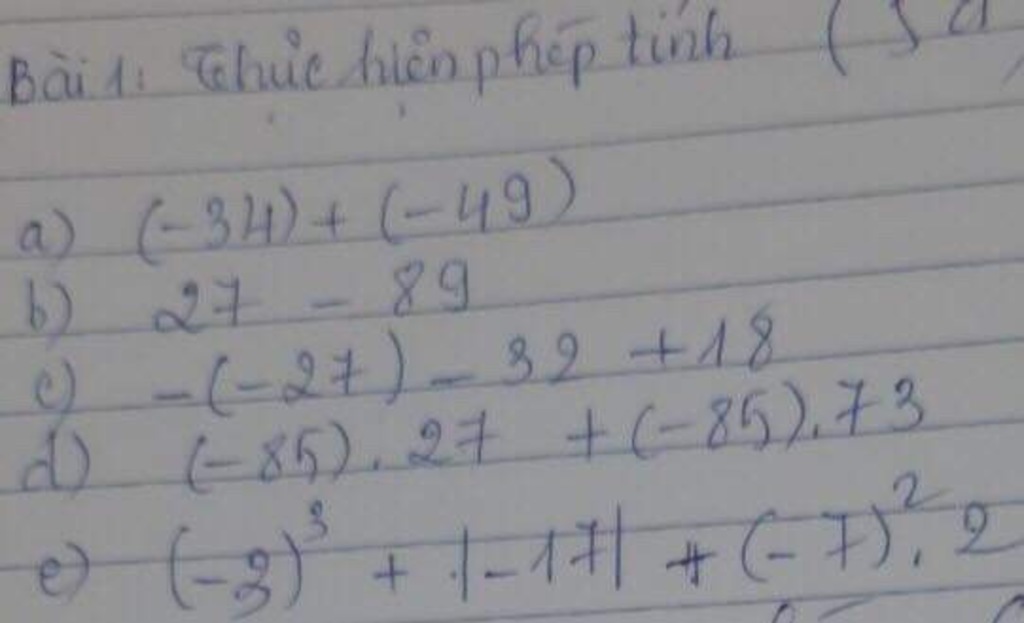 Bài 1: Thực hiện phép tính (5đ)
a) (-34) + (-49)
b) 27 - 89
c) -(-27) - 32 + 18
d) (-85) . 27 + (-85) . 73
e) (-3)³ + |-17| + (-7)² . 2